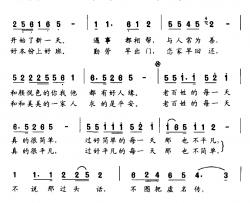 2 5 6 1 6 5 - | 1 1. 6 1 2 | 5 5 4 5 2 -
开始了新一天， 遇事 都相帮， 与人常为善。
好本份上好班， 勤劳 早出门， 恋家早回还。
5 2 2 5 2 6 5 | 6. 5 2 6 5 - | 5 5 1 5 2 1
和颜悦色的你我他 都有好人缘， 老百姓的每一天
和和美美的一家人 求的是平安。 老百姓的每一天
6. 5 2 6 5 - | 5 5 1 1 5 5 2 1 | 1 6 5 1 1 -
真的很简单， 过好简单的每一天 那也不平凡，
真的很平凡， 过好平凡的每一天 那也不简单，
1 1. 6 1 2 - | 2 4 4 5 6 5 4. 3
不说那过头话， 不图把虚名传，